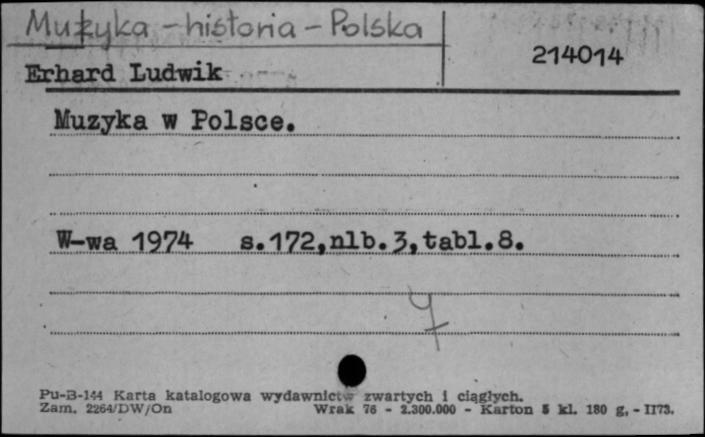 Muzyka - historia - Polska
214014
Erhard Ludwik
Muzyka w Polsce.
W-wa 1974 s.172,nlb.3,tabl.8.
Pu-B-144 Karta katalogowa wydawnictw zwartych i ciągłych.
Zam. 2264/DW/On Wrak 76 - 2.300.000 - Karton 5 kl. 180 g, - II73.